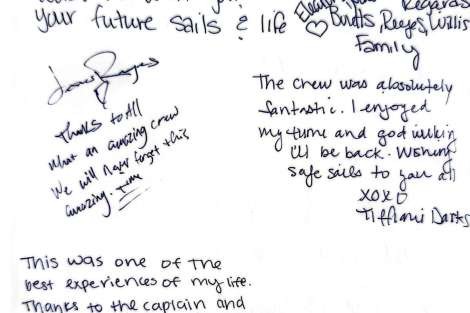 your future sails & life
Regards
Burtts, Reyes, Willis
Family
Thanks to All
what an amazing crew
We will never forget this
amazing time
The crew was absolutely
fantastic. I enjoyed
my time and god willing
I'll be back. Wishing
safe sails to you all
XOXO
Tiffani
This was one of the
best experiences of my life.
Thanks to the captain and